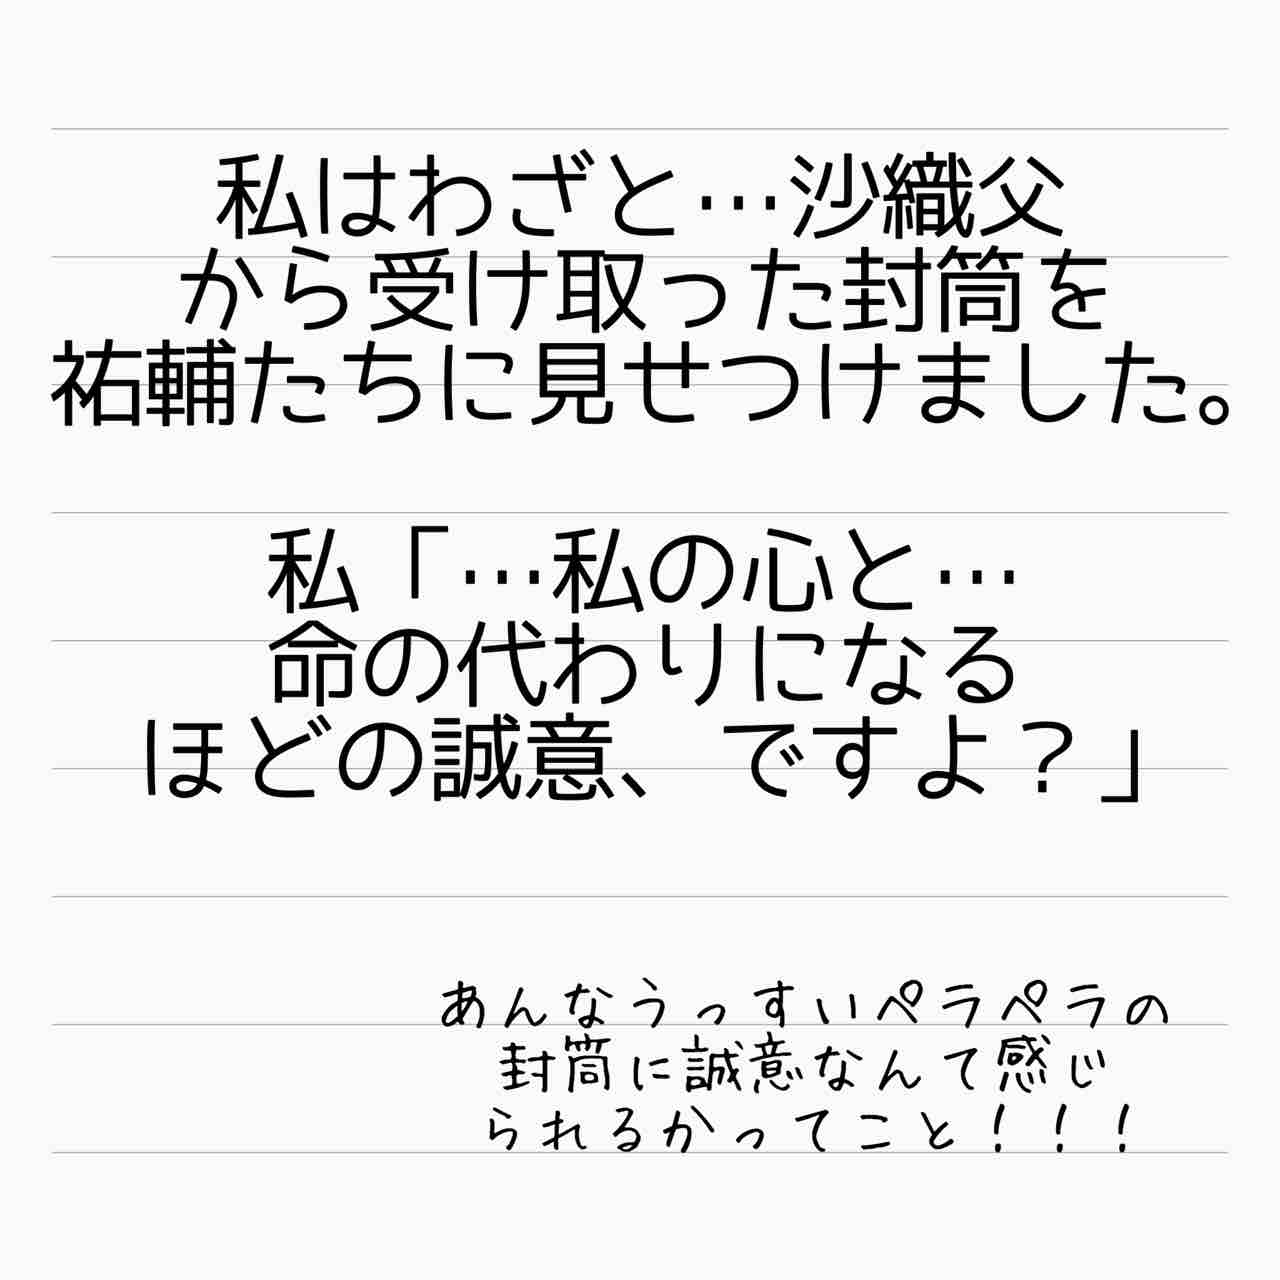 私はわざと…沙織父
から受け取った封筒を
祐輔たちに見せつけました。
私「…私の心と…
命の代わりになる
ほどの誠意、ですよ？」
あんなうっすいペラペラの
封筒に誠意なんて感じ
られるかってこと！！！